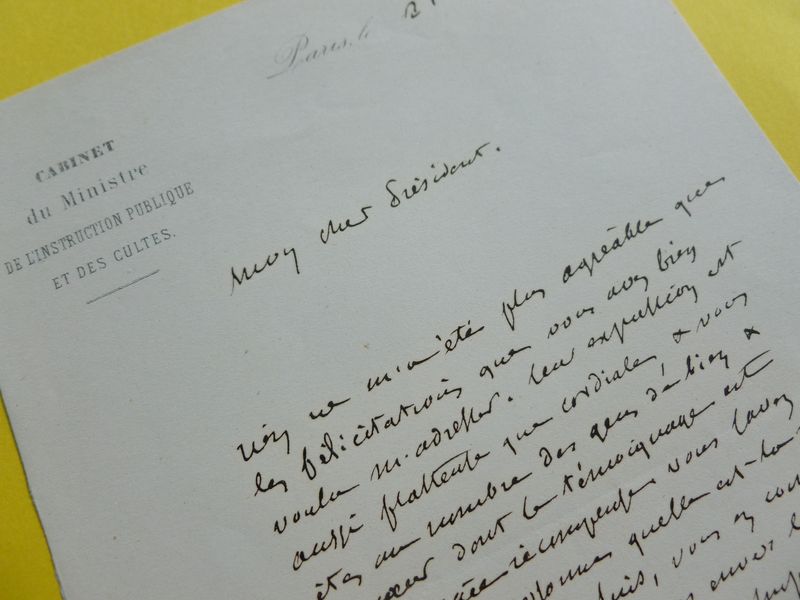 Paris, le 2
CABINET
du Ministre
DE L'INSTRUCTION PUBLIQUE
ET DES CULTES.
Mon cher Président.
rien ne m'a été plus agréable que
les félicitations que vous avez bien
voulu m'adresser. leur expression est
aussi flatteuse que cordiale, & vous
êtes au nombre des gens de bien &
cœur dont le témoignage est
récompense. vous savez
quelle est la
puis, vous en
envers